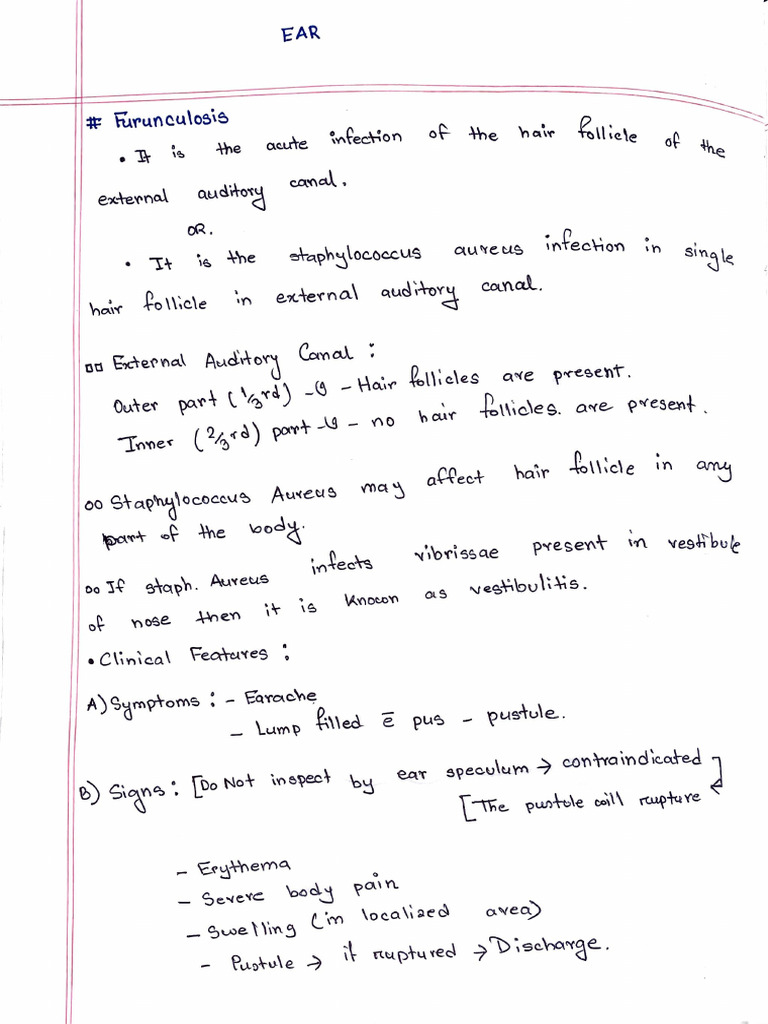 EAR
# Furunculosis
• It is the acute infection of the hair follicle of the
external auditory canal.
OR.
• It is the staphylococcus aureus infection in single
hair follicle in external auditory canal.
External Auditory Canal :
Outer part (1/3rd) - - Hair follicles are present.
Inner (2/3rd) part - - no hair follicles. are present.
oo Staphylococcus Aureus may affect hair follicle in any
part of the body.
oo If staph. Aureus infects vibrissae present in vestibule
of nose then it is known as vestibulitis.
• Clinical Features :
A) Symptoms : - Earache
- Lump filled c̄ pus - pustule.
B) Signs : [Do Not inspect by ear speculum → contraindicated
[The pustule will rupture
- Erythema
- Severe body pain
- Swelling (in localized area)
- Pustule → if ruptured → Discharge.